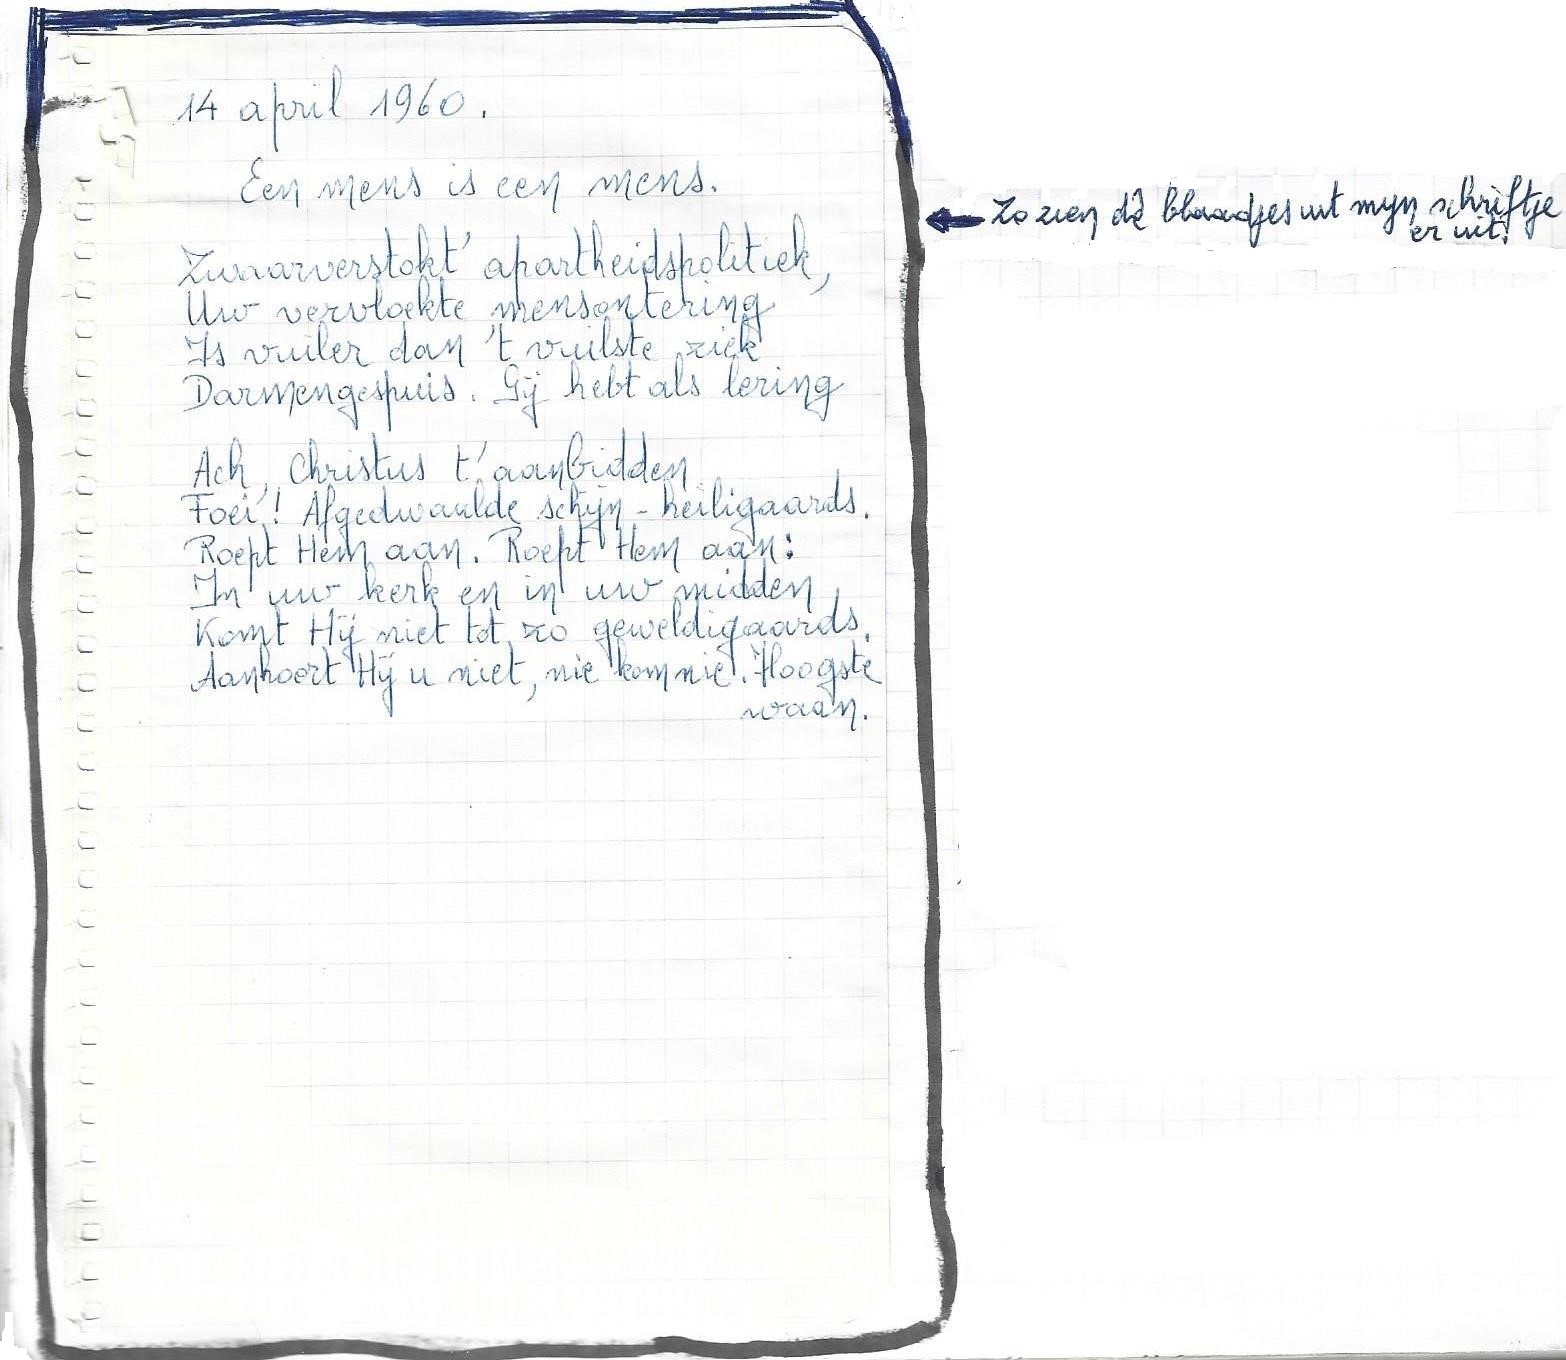 14 april 1960.
Een mens is een mens.
Zwaarverstokt' apartheidspolitiek,
Uw vervloekte mensontering
Is vuiler dan 't vuilste ziek
Darmengespuis. Gij hebt als lering
Ach, Christus t' aanbidden
Foei! Afgedwaalde schijn-heiligaards.
Roept Hem aan. Roept Hem aan:
In uw kerk en in uw midden
Komt Hij niet tot zo geweldigaards.
Aanhoort Hij u niet, nie kom nie. Hoogste
waan.
Zo zien de blaadjes uit mijn schriftje
er uit.